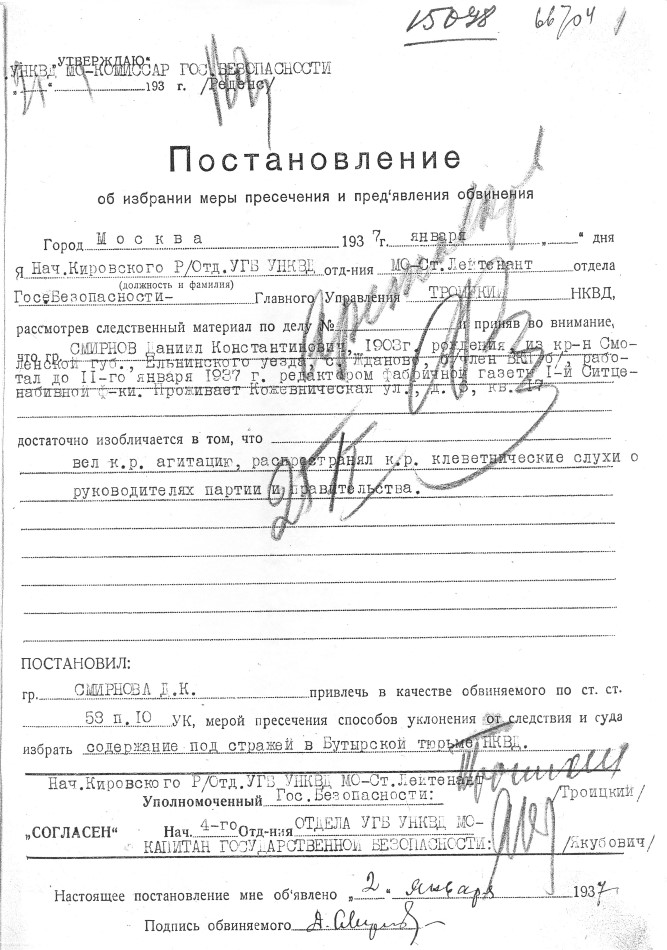 15098 66704
„УТВЕРЖДАЮ“
УНКВД МО-КОМИССАР ГОС.БЕЗОПАСНОСТИ
„ “ 193 г. /Реденс/
Постановление
об избрании меры пресечения и пред'явления обвинения
Город Москва 1937г. января „ “ дня
Я Нач.Кировского Р/Отд.УГБ УНКВД отд-ния МО-Ст.Лейтенант отдела
(должность и фамилия)
Гос.Безопасности- Главного Управления ТРОИЦКИЙ НКВД,
рассмотрев следственный материал по делу № и приняв во внимание,
что гр. СМИРНОВ Даниил Константинович, 1903г. рождения, из кр-н Смо-
ленской губ., Ельнинского уезда, с. Жданово, б/член ВКП/б/, рабо-
тал до II-го января 1937 г. редактором фабричной газеты I-й Ситце-
набивной ф-ки. Проживает Кожевническая ул., д. кв.
достаточно изобличается в том, что
вел к.р. агитацию, распространял к.р. клеветнические слухи о
руководителях партии и правительства.
ПОСТАНОВИЛ:
гр. СМИРНОВА Д.К. привлечь в качестве обвиняемого по ст. ст.
58 п.10 УК, мерой пресечения способов уклонения от следствия и суда
избрать содержание под стражей в Бутырской тюрьме НКВД.
Нач.Кировского Р/Отд.УГБ УНКВД МО-Ст.Лейтенант
Уполномоченный Гос.Безопасности: /Троицкий/
„СОГЛАСЕН“ Нач. 4-го Отд-ния ОТДЕЛА УГБ УНКВД МО-
КАПИТАН ГОСУДАРСТВЕННОЙ БЕЗОПАСНОСТИ: /Якубович/
Настоящее постановление мне об'явлено „2“ января 1937
Подпись обвиняемого Д. Смирнов